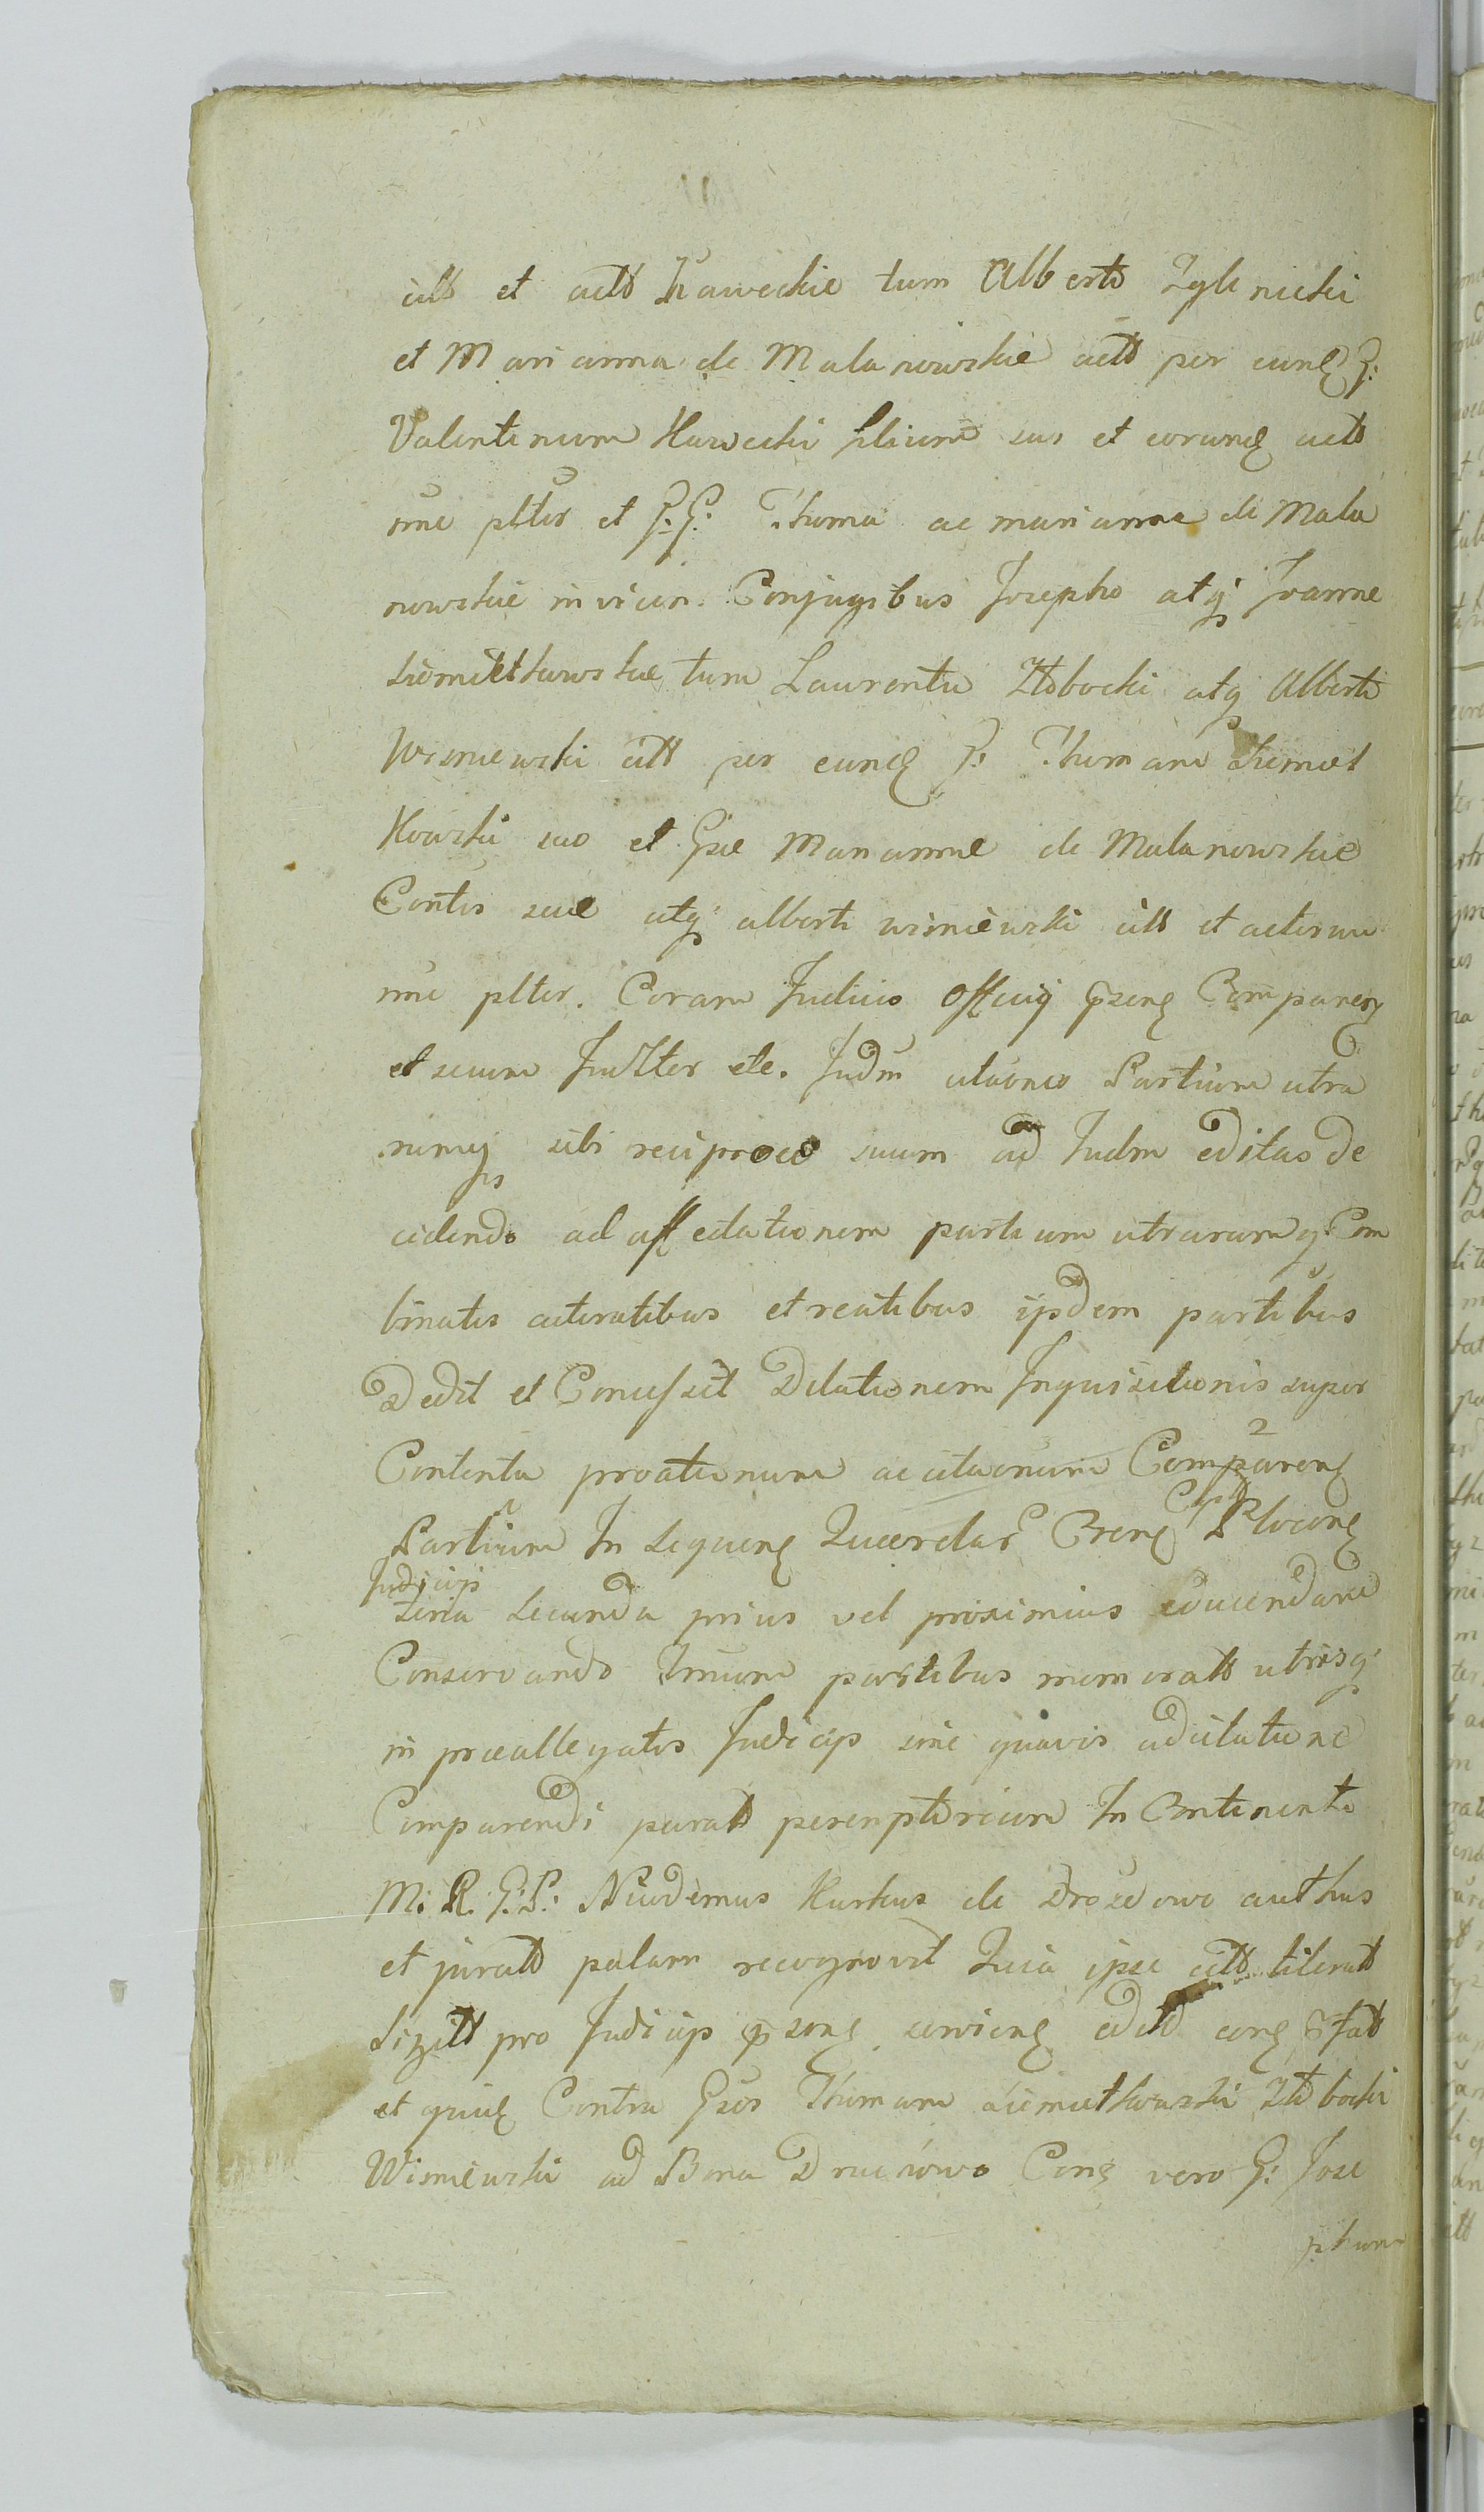 citt et actt Kaweckie tum Alberto Zyli nicki
et Marianna de Malanowskie actt per eund G:
Valentinum Kawecki filium suo et eorund actt
nne plter et G.G. Thoma ac marianna de Mala
nowskie invicem Conjugibus Josepho atq Joanne
Siemiethowskie tum Laurentii Złobocki atq Alberti
Wisniewski citt per eund G: Thomam Siemiet
kowski suo et Gsae Mariannae de Malanowskie
Contis suae atq alberti wisniewski citt et actorum
nne plter. Coram Judicio Officij psend Comparen
et secum Judlter etc. Judm citaones Partium utra
rumq sibi reciproce suum ad Judm editas de
cidendo ad affectationem partium utrarumq Com
binatis actoratibus et reatibus ijsdem partibus
Dedit et Concessit Dilationem Inquisitionis super
Contenta proationum ac citaonum Comparend
Partium In sequend Querelar Cptt Plocens
Judicijs
feria secunda prius vel proximius educendam
Conservando Tmum partibus memoratt utrisq
in praeallegatis Judicijs sine quavis adcitatione
Comparendi paratt peremptorium In Continenti
M. R. G. P: Nicodemus Kurkus de Drozdowo authus
et juratt palam recognovit Quia ipse citt literatt
Sigitt pro Judicijs psend serviend edidit eund
et quid Contra Gsos Thomam Siemiethowski Zło bocki
Wisniewski ad Bona Draciowo Cond vero G: Jose
phum